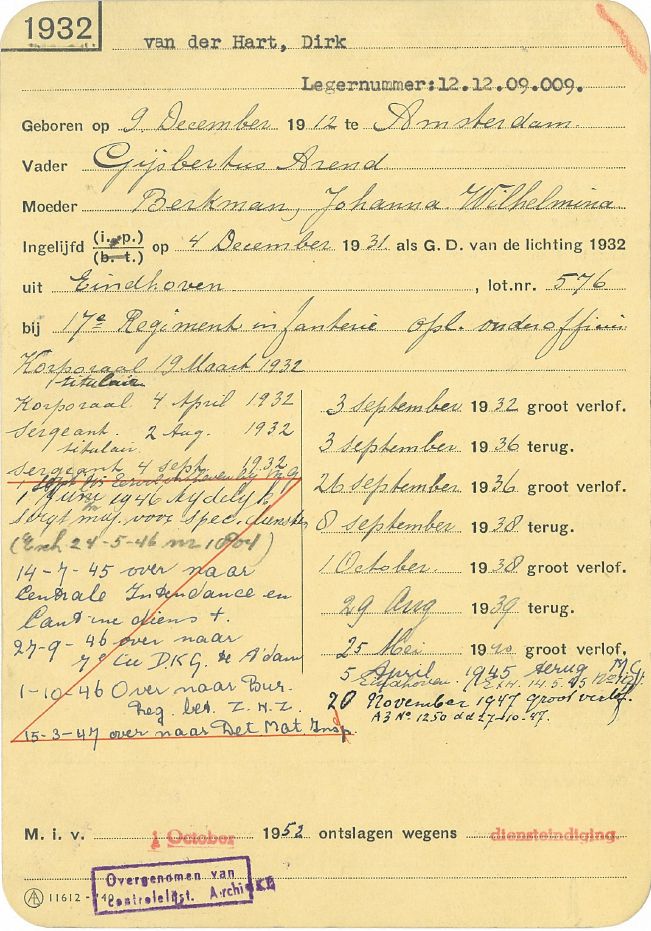 1932
van der Hart, Dirk
Legernummer:12.12.09.009.
Geboren op 9 December 1912 te Amsterdam
Vader Gijsbertus Arend
Moeder Berkman, Johanna Wilhelmina
Ingelijfd (i. p.) (b. t.) op 4 December 1931 als G. D. van de lichting 1932
uit Eindhoven, lot.nr. 576
bij 17e Regiment infanterie opl. onderofficier
Korporaal 19 Maart 1932
titulair
Korporaal 4 April 1932
Sergeant 2 Aug. 1932
titulair
Sergeant 4 sept. 1932
1 Juni 1946 tijdelijk
sergt maj. voor spec. diensten
(Exh 24-5-46 nr
14-7-45 over naar
Centrale Intendance en
Cantine dienst.
27-9-46 over naar
D.K.G. te A'dam
1-10-46 Over naar Bur.
Reg. bet. Z.H.Z.
15-3-47 over naar Det Mat Insp.
3 September 1932 groot verlof.
3 september 1936 terug.
26 september 1936 groot verlof.
8 september 1938 terug.
1 October 1938 groot verlof.
29 Aug 1939 terug.
25 Mei 1940 groot verlof.
5 April 1945 terug M.G.
Eindhoven. 14.5.45
20 November 1947 groot verlof.
A3 No. 1250 dd 27-10-47.
M. i. v. 1 October 1952 ontslagen wegens diensteindiging.
Overgenomen van
Controlelijst. Archief
11612 - '40